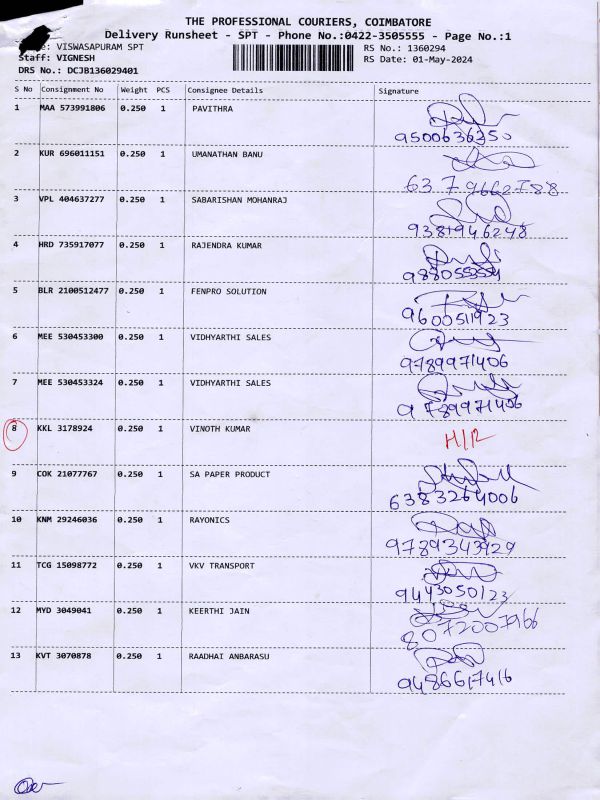 THE PROFESSIONAL COURIERS, COIMBATORE
Delivery Runsheet - SPT - Phone No.:0422-3505555 - Page No.:1
VISWASAPURAM SPT RS No.: 1360294
Staff: VIGNESH RS Date: 01-May-2024
DRS No.: DCJB136029401
S No Consignment No Weight PCS Consignee Details Signature
1 MAA 573991806 0.250 1 PAVITHRA
9500636350
2 KUR 696011151 0.250 1 UMANATHAN BANU
637 9662788
3 VPL 404637277 0.250 1 SABARISHAN MOHANRAJ
9381946248
4 HRD 735917077 0.250 1 RAJENDRA KUMAR
5 BLR 2100512477 0.250 1 FENPRO SOLUTION
9600511923
6 MEE 530453300 0.250 1 VIDHYARTHI SALES
9789971406
7 MEE 530453324 0.250 1 VIDHYARTHI SALES
9789971406
8 KKL 3178924 0.250 1 VINOTH KUMAR H/R
9 COK 21077767 0.250 1 SA PAPER PRODUCT
6383264006
10 KNM 29246036 0.250 1 RAYONICS
9789343929
11 TCG 15098772 0.250 1 VKV TRANSPORT
9443050123
12 MYD 3049041 0.250 1 KEERTHI JAIN
8072007966
13 KVT 3070878 0.250 1 RAADHAI ANBARASU
9486617416